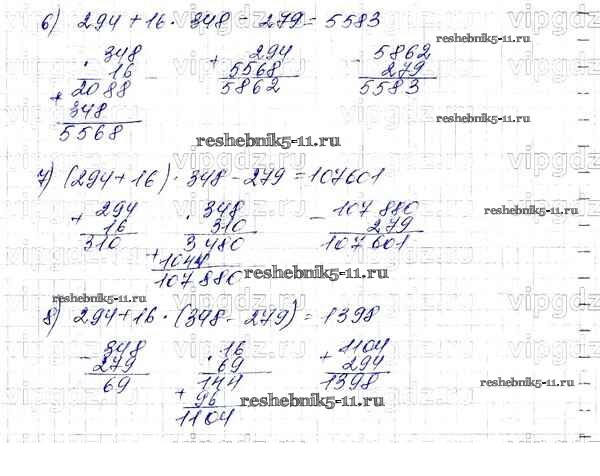 6) 294 + 16 · 348 - 279 = 5583
348
· 16
2088
+ 348
5568
+ 294
5568
5862
- 5862
279
5583
7) (294 + 16) · 348 - 279 = 107601
+ 294
16
310
· 348
310
3480
+ 1044
107880
- 107880
279
107601
8) 294 + 16 · (348 - 279) = 1398
- 348
279
69
· 16
69
144
+ 96
1104
+ 1104
294
1398
reshebnik5-11.ru
reshebnik5-11.ru
reshebnik5-11.ru
reshebnik5-11.ru
reshebnik5-11.ru
reshebnik5-11.ru
reshebnik5-11.ru
reshebnik5-11.ru
reshebnik5-11.ru
vipgdz.ru
vipgdz.ru
vipgdz.ru